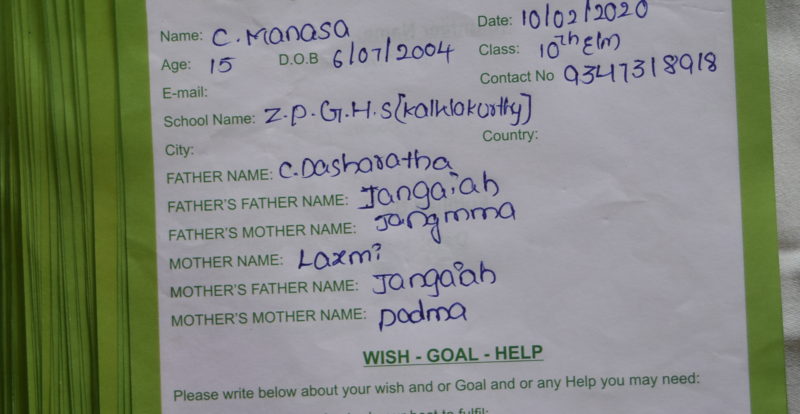 Name: C. Manasa Date: 10/02/2020
Age: 15 D.O.B 6/07/2004 Class: 10th E/m
E-mail: Contact No 9347318918
School Name: Z.P.G.H.S [Kalklakurthy]
City: Country:
FATHER NAME: C. Dasharatha
FATHER'S FATHER NAME: Jangaiah
FATHER'S MOTHER NAME: Jangmma
MOTHER NAME: Laxmi
MOTHER'S FATHER NAME: Jangaiah
MOTHER'S MOTHER NAME: Padma
WISH - GOAL - HELP
Please write below about your wish and or Goal and or any Help you may need: